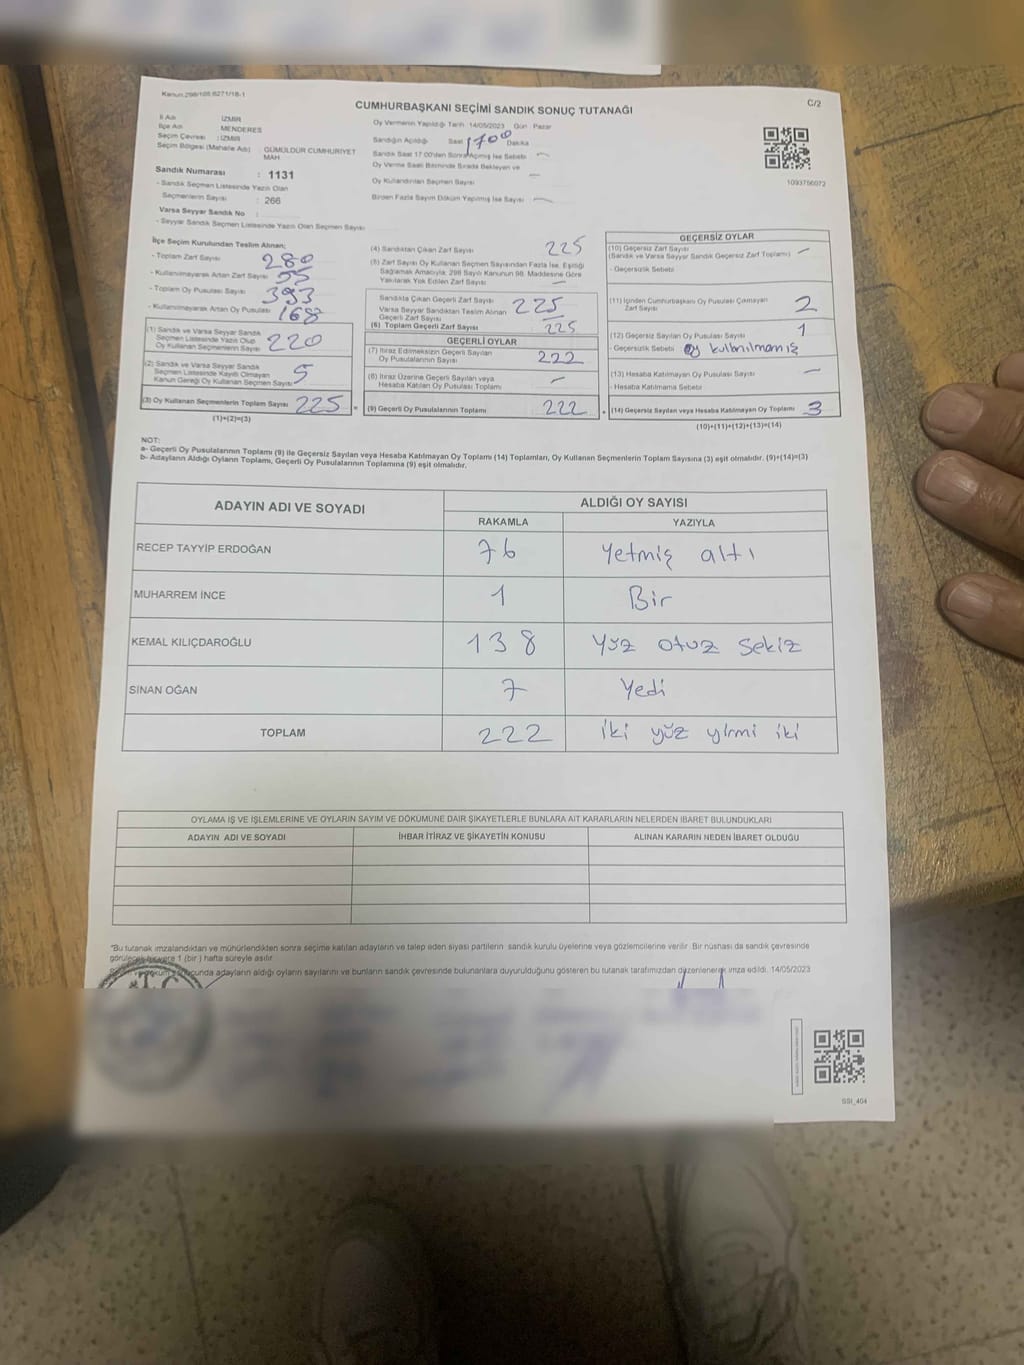 Kanun:298/105 6271/18-1
C/2
CUMHURBAŞKANI SEÇİMİ SANDIK SONUÇ TUTANAĞI
İl Adı : İZMİR
İlçe Adı : MENDERES
Seçim Çevresi : İZMİR
Seçim Bölgesi (Mahalle Adı) : GÜMÜLDÜR CUMHURİYET MAH
Sandık Numarası : 1131
- Sandık Seçmen Listesinde Yazılı Olan
Seçmenlerin Sayısı : 266
Varsa Seyyar Sandık No :
- Seyyar Sandık Seçmen Listesinde Yazılı Olan Seçmen Sayısı :
Oy Vermenin Yapıldığı Tarih :14/05/2023 Gün : Pazar
Sandığın Açıldığı Saat 17 00 Dakika
Sandık Saat 17:00'den Sonra Açılmış İse Sebebi —
Oy Verme Saati Bitiminde Sırada Bekleyen ve
Oy Kullandırılan Seçmen Sayısı —
Birden Fazla Sayım Döküm Yapılmış İse Sayısı —
1093756072
İlçe Seçim Kurulundan Teslim Alınan;
- Toplam Zarf Sayısı 280
- Kullanılmayarak Artan Zarf Sayısı 55
- Toplam Oy Pusulası Sayısı 393
- Kullanılmayarak Artan Oy Pusulası 168
(1) Sandık ve Varsa Seyyar Sandık
Seçmen Listesinde Yazılı Olup
Oy Kullanan Seçmenlerin Sayısı 220
(2) Sandık ve Varsa Seyyar Sandık
Seçmen Listesinde Kayıtlı Olmayan
Kanun Gereği Oy Kullanan Seçmen Sayısı 5
(3) Oy Kullanan Seçmenlerin Toplam Sayısı 225 =
(1)+(2)=(3)
(4) Sandıktan Çıkan Zarf Sayısı 225
(5) Zarf Sayısı Oy Kullanan Seçmen Sayısından Fazla İse, Eşitliği
Sağlamak Amacıyla; 298 Sayılı Kanunun 98. Maddesine Göre
Yakılarak Yok Edilen Zarf Sayısı —
Sandıkta Çıkan Geçerli Zarf Sayısı 225
Varsa Seyyar Sandıktan Teslim Alınan
Geçerli Zarf Sayısı —
(6) Toplam Geçerli Zarf Sayısı 225
GEÇERLİ OYLAR
(7) İtiraz Edilmeksizin Geçerli Sayılan
Oy Pusulalarının Sayısı 222
(8) İtiraz Üzerine Geçerli Sayılan veya
Hesaba Katılan Oy Pusulası Toplamı —
(9) Geçerli Oy Pusulalarının Toplamı 222 +
GEÇERSİZ OYLAR
(10) Geçersiz Zarf Sayısı —
(Sandık ve Varsa Seyyar Sandık Geçersiz Zarf Toplamı)
- Geçersizlik Sebebi
(11) İçinden Cumhurbaşkanı Oy Pusulası Çıkmayan
Zarf Sayısı 2
(12) Geçersiz Sayılan Oy Pusulası Sayısı 1
- Geçersizlik Sebebi oy kullanılmamış
(13) Hesaba Katılmayan Oy Pusulası Sayısı —
- Hesaba Katılmama Sebebi
(14) Geçersiz Sayılan veya Hesaba Katılmayan Oy Toplamı 3
(10)+(11)+(12)+(13)=(14)
NOT:
a- Geçerli Oy Pusulalarının Toplamı (9) ile Geçersiz Sayılan veya Hesaba Katılmayan Oy Toplamı (14) Toplamları, Oy Kullanan Seçmenlerin Toplam Sayısına (3) eşit olmalıdır. (9)+(14)=(3)
b- Adayların Aldığı Oyların Toplamı, Geçerli Oy Pusulalarının Toplamına (9) eşit olmalıdır.
ADAYIN ADI VE SOYADI ALDIĞI OY SAYISI
RAKAMLA YAZIYLA
RECEP TAYYİP ERDOĞAN 76 Yetmiş altı
MUHARREM İNCE 1 Bir
KEMAL KILIÇDAROĞLU 138 Yüz otuz sekiz
SİNAN OĞAN 7 Yedi
TOPLAM 222 iki yüz yirmi iki
OYLAMA İŞ VE İŞLEMLERİNE VE OYLARIN SAYIM VE DÖKÜMÜNE DAİR ŞİKAYETLERLE BUNLARA AİT KARARLARIN NELERDEN İBARET BULUNDUKLARI
ADAYIN ADI VE SOYADI İHBAR İTİRAZ VE ŞİKAYETİN KONUSU ALINAN KARARIN NEDEN İBARET OLDUĞU
*Bu tutanak imzalandıktan ve mühürlendikten sonra seçime katılan adayların ve talep eden siyasi partilerin sandık kurulu üyelerine veya gözlemcilerine verilir. Bir nüshası da sandık çevresinde
görülecek bir yere 1 (bir) hafta süreyle asılır.
sonucunda adayların aldığı oyların sayılarını ve bunların sandık çevresinde bulunanlara duyurulduğunu gösteren bu tutanak tarafımızdan düzenlenerek imza edildi. 14/05/2023
T.C.
SSI_404